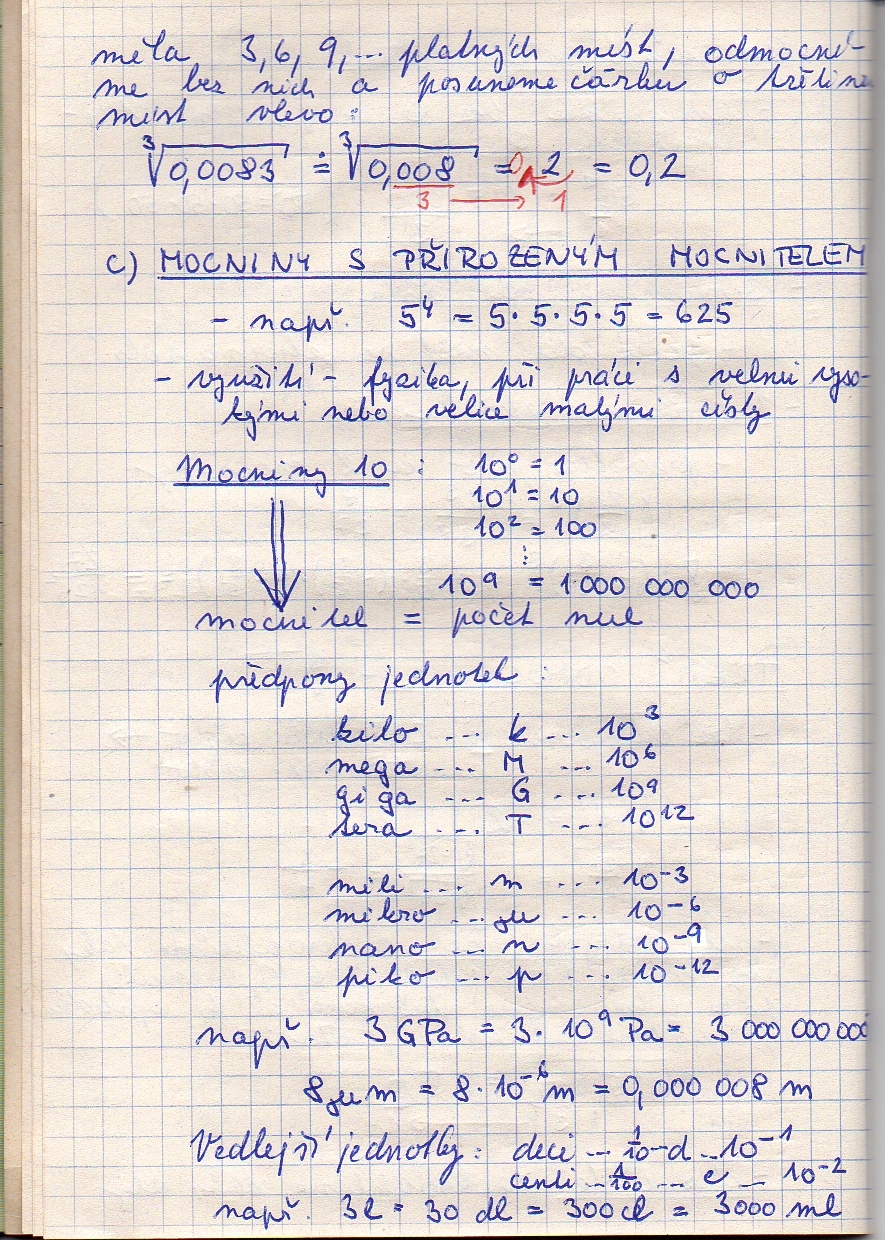 měla 3, 6, 9, ... platných míst, odmocní-
me bez nich a posuneme čárku o třetinu
míst vlevo:
∛0,0083 ≐ ∛0,008 = 0,2 = 0,2
3 → 1
C) MOCNINY S PŘIROZENÝM MOCNITELEM
- např. 5⁴ = 5·5·5·5 = 625
- využití - fyzika, při práci s velmi vyso-
kými nebo velice malými čísly
Mocniny 10 : 10⁰ = 1
10¹ = 10
10² = 100
⋮
10⁹ = 1 000 000 000
mocnitel = počet nul
předpony jednotek :
kilo ... k ... 10³
mega ... M ... 10⁶
giga ... G ... 10⁹
tera ... T ... 10¹²
mili ... m ... 10⁻³
mikro ... μ ... 10⁻⁶
nano ... n ... 10⁻⁹
piko ... p ... 10⁻¹²
např. 3 GPa = 3·10⁹ Pa = 3 000 000 000
8 μm = 8·10⁻⁶ m = 0,000 008 m
Vedlejší jednotky: deci ... 1/10 - d ... 10⁻¹
centi ... 1/100 ... c ... 10⁻²
např. 3l = 30 dl = 300 cl = 3000 ml